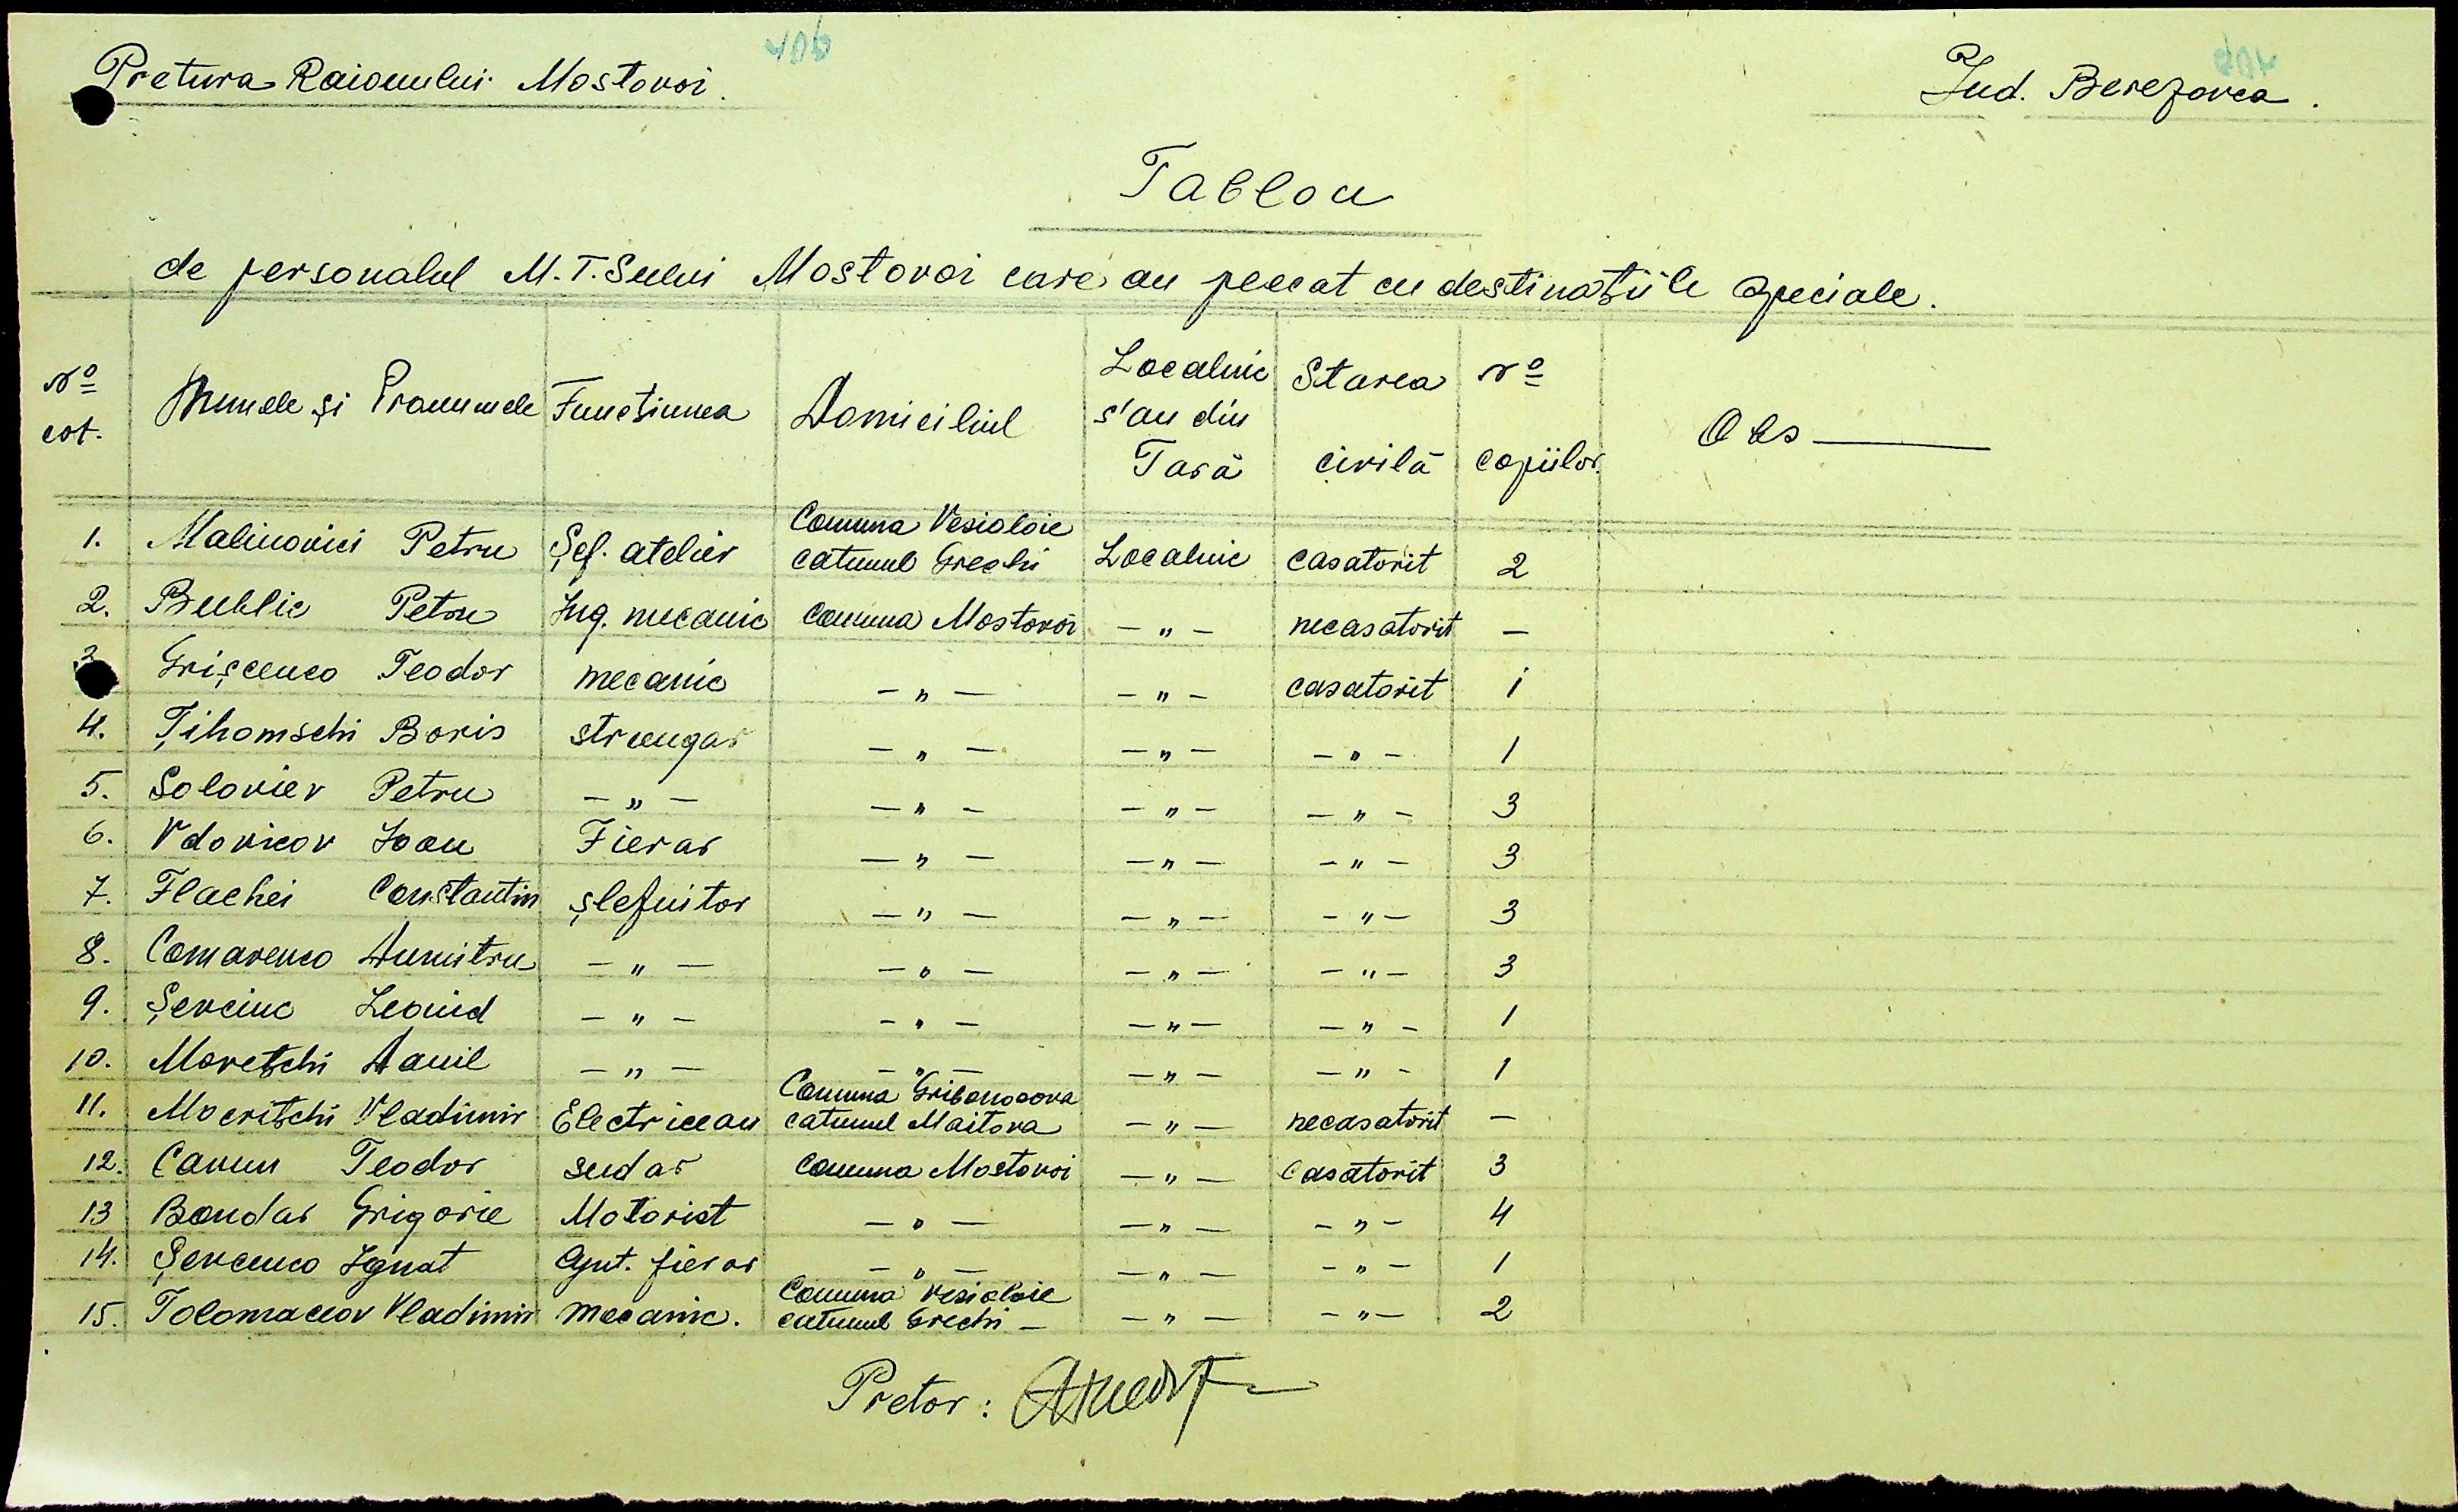 406
Pretura Raionului Mostovoi.
Jud. Berezovca.
Tablou
de personalul M.T.Seului Mostovoi care au plecat cu destinațiile speciale.
No crt. Numele și Pronumele Funcțiunea Domiciliul Localnic s'au din Țară Starea civilă No copiilor Obs
1. Malinovici Petru Șef. atelier Comuna Vesioloie catunul Grechi Localnic casatorit 2
2. Bublic Petru Ing. mecanic comuna Mostovoi -"- necasatorit —
3 Grișcenco Teodor mecanic -"- -"- casatorit 1
4. Țihomschi Boris strungar -"- -"- -"- 1
5. Soloviev Petru -"- -"- -"- -"- 3
6. Vdovicov Ioan Fierar -"- -"- -"- 3
7. Flachei Constantin șlefuitor -"- -"- -"- 3
8. Comarenco Dumitru -"- -"- -"- -"- 3
9. Șevciuc Leonid -"- -"- -"- -"- 1
10. Morețchi Danil -"- -"- -"- -"- 1
11. Mocrițchi Vladimir Electricean Comuna catunul Maitova -"- necasatorit —
12. Cavun Teodor sudar comuna Mostovoi -"- casatorit 3
13 Bondar Grigorie Motorist -"- -"- -"- 4
14. Șevcenco Ignat Ajut. fierar -"- -"- -"- 1
15. Tolomacov Vladimir mecanic. Comuna Vesioloie catunul Grechi — -"- -"- 2
Pretor: